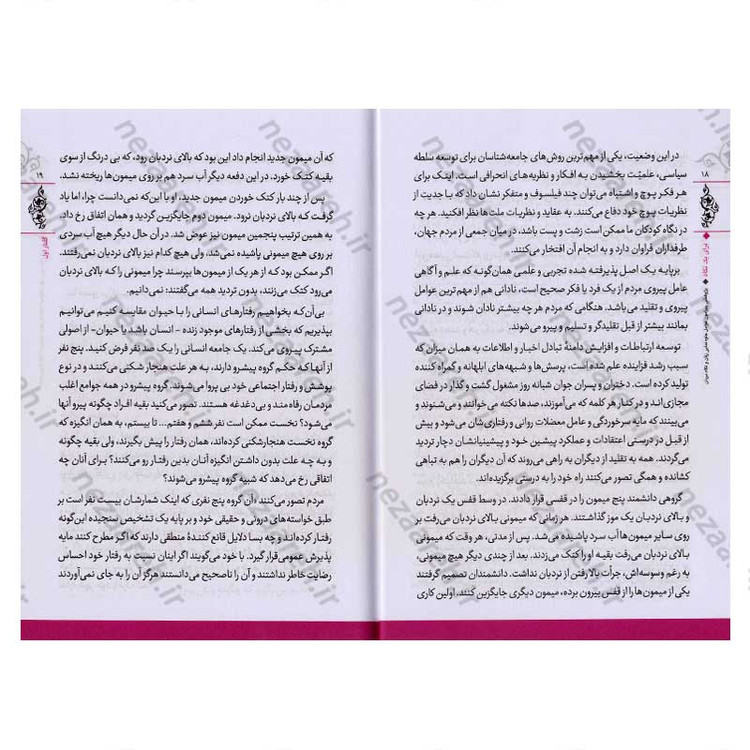 ۱۸
برای یک نگاه
در این وضعیت، یکی از مهم‌ترین روش‌های جامعه‌شناسان برای توسعه سلطه
سیاسی، علمیّت بخشیدن به افکار و نظریه‌های انحرافی است. اینک برای
هر فکر پوچ و اشتباه می‌توان چند فیلسوف و متفکر نشان داد که با جدیت از
نظریات پوچ خود دفاع می‌کنند. به عقاید و نظریات ملت‌ها نظر افکنید. هر چه
در نگاه کودکان ما ممکن است زشت و پست باشد، در میان جمعی از مردم جهان،
طرفداران فراوان دارد و به انجام آن افتخار می‌کنند.
برپایه یک اصل پذیرفته شده تجربی و علمی همان‌گونه که علم و آگاهی
عامل پیروی مردم از یک فرد یا فکر صحیح است، نادانی هم از مهم‌ترین عوامل
پیروی و تقلید می‌باشد. هنگامی که مردم هر چه بیشتر نادان شوند و در نادانی
بمانند بیشتر از قبل تقلیدگر و تسلیم و پیرو می‌شوند.
توسعه ارتباطات و افزایش دامنهٔ تبادل اخبار و اطلاعات به همان میزان که
سبب رشد فزاینده علم شده است، پرسش‌ها و شبهه‌های ابلهانه و گمراه کننده
تولید کرده است. دختران و پسران جوان شبانه روز مشغول گشت و گذار در فضای
مجازی‌اند و در کنار هر کلمه که می‌آموزند، صدها نکته می‌خوانند و می‌شنوند و
می‌بینند که مایه سرخوردگی و عامل معضلات روانی و رفتاری‌شان می‌شود و بیش
از قبل در درستی اعتقادات و عملکرد پیشین خود و پیشینیانشان دچار تردید
می‌گردند. همه به تقلید از دیگران به راهی می‌روند که آن دیگران را هم به تباهی
کشانده و همگی تصور می‌کنند راه خود را به درستی برگزیده‌اند.
گروهی دانشمند پنج میمون را در قفسی قرار دادند. در وسط قفس یک نردبان
و بالای نردبان یک موز گذاشتند. هر زمانی که میمونی بالای نردبان می‌رفت بر
روی سایر میمون‌ها آب سرد پاشیده می‌شد. پس از مدتی، هر وقت که میمونی
بالای نردبان می‌رفت بقیه او را کتک می‌زدند. بعد از چندی دیگر هیچ میمونی،
به رغم وسوسه‌اش، جرأت بالا رفتن از نردبان نداشت. دانشمندان تصمیم گرفتند
یکی از میمون‌ها را از قفس بیرون برده، میمون دیگری جایگزین کنند. اولین کاری
۱۹
گفتار اول
که آن میمون جدید انجام داد این بود که بالای نردبان رود، که بی درنگ از سوی
بقیه کتک خورد. در این دفعه دیگر آب سرد هم بر روی میمون‌ها ریخته نشد.
پس از چند بار کتک خوردن میمون جدید، او با این‌که نمی‌دانست چرا، اما یاد
گرفت که بالای نردبان نرود. میمون دوم جایگزین گردید و همان اتفاق رخ داد.
به همین ترتیب پنجمین میمون نیز عوض شد. در آن حال دیگر هیچ آب سردی
بر روی هیچ میمونی پاشیده نمی‌شد، ولی هیچ کدام نیز بالای نردبان نمی‌رفتند.
اگر ممکن بود که از هر یک از میمون‌ها بپرسند چرا میمونی را که بالای نردبان
می‌رود کتک می‌زنند، بدون تردید همه می‌گفتند: نمی‌دانیم.
بی‌آن‌که بخواهیم رفتارهای انسانی را با حیوان مقایسه کنیم می‌توانیم
بپذیریم که بخشی از رفتارهای موجود زنده - انسان باشد یا حیوان - از اصولی
مشترک پیروی می‌کند. یک جامعه انسانی را یک صد نفر فرض کنید. پنج نفر
از آنها که حکم گروه پیشرو دارند، به هر علت هنجارشکنی می‌کنند و در نوع
پوشش و رفتار اجتماعی خود بی پروا می‌شوند. گروه پیشرو در همه جوامع اغلب
مردمان رفاه مند و بی‌دغدغه هستند. تصور می‌کنید بقیه افراد چگونه پیرو آنها
می‌شود؟ نخست ممکن است نفر ششم و هفتم... تا بیستم، به همان انگیزه که
گروه نخست هنجارشکنی کرده‌اند، همان رفتار را پیش بگیرند، ولی بقیه چگونه
و به چه علت بدون داشتن انگیزه آنان بدین رفتار رو می‌کنند؟ برای آنان چه
اتفاقی رخ می‌دهد که شبیه گروه پیشرو می‌شوند؟
مردم تصور می‌کنند، آن گروه پنج نفری که اینک شمارشان بیست نفر است بر
طبق خواسته‌های درونی و حقیقی خود و بر پایه یک تشخیص سنجیده این‌گونه
رفتار کرده‌اند و چه بسا دلایل قانع کنندهٔ منطقی دارند که اگر مطرح کنند مایه
پذیرش عمومی قرار گیرد. با خود می‌گویند اگر اینان نسبت به رفتار خود احساس
رضایت خاطر نداشتند و آن را ناصحیح می‌دانستند هرگز آن را به جای نمی‌آوردند
nezaah.ir